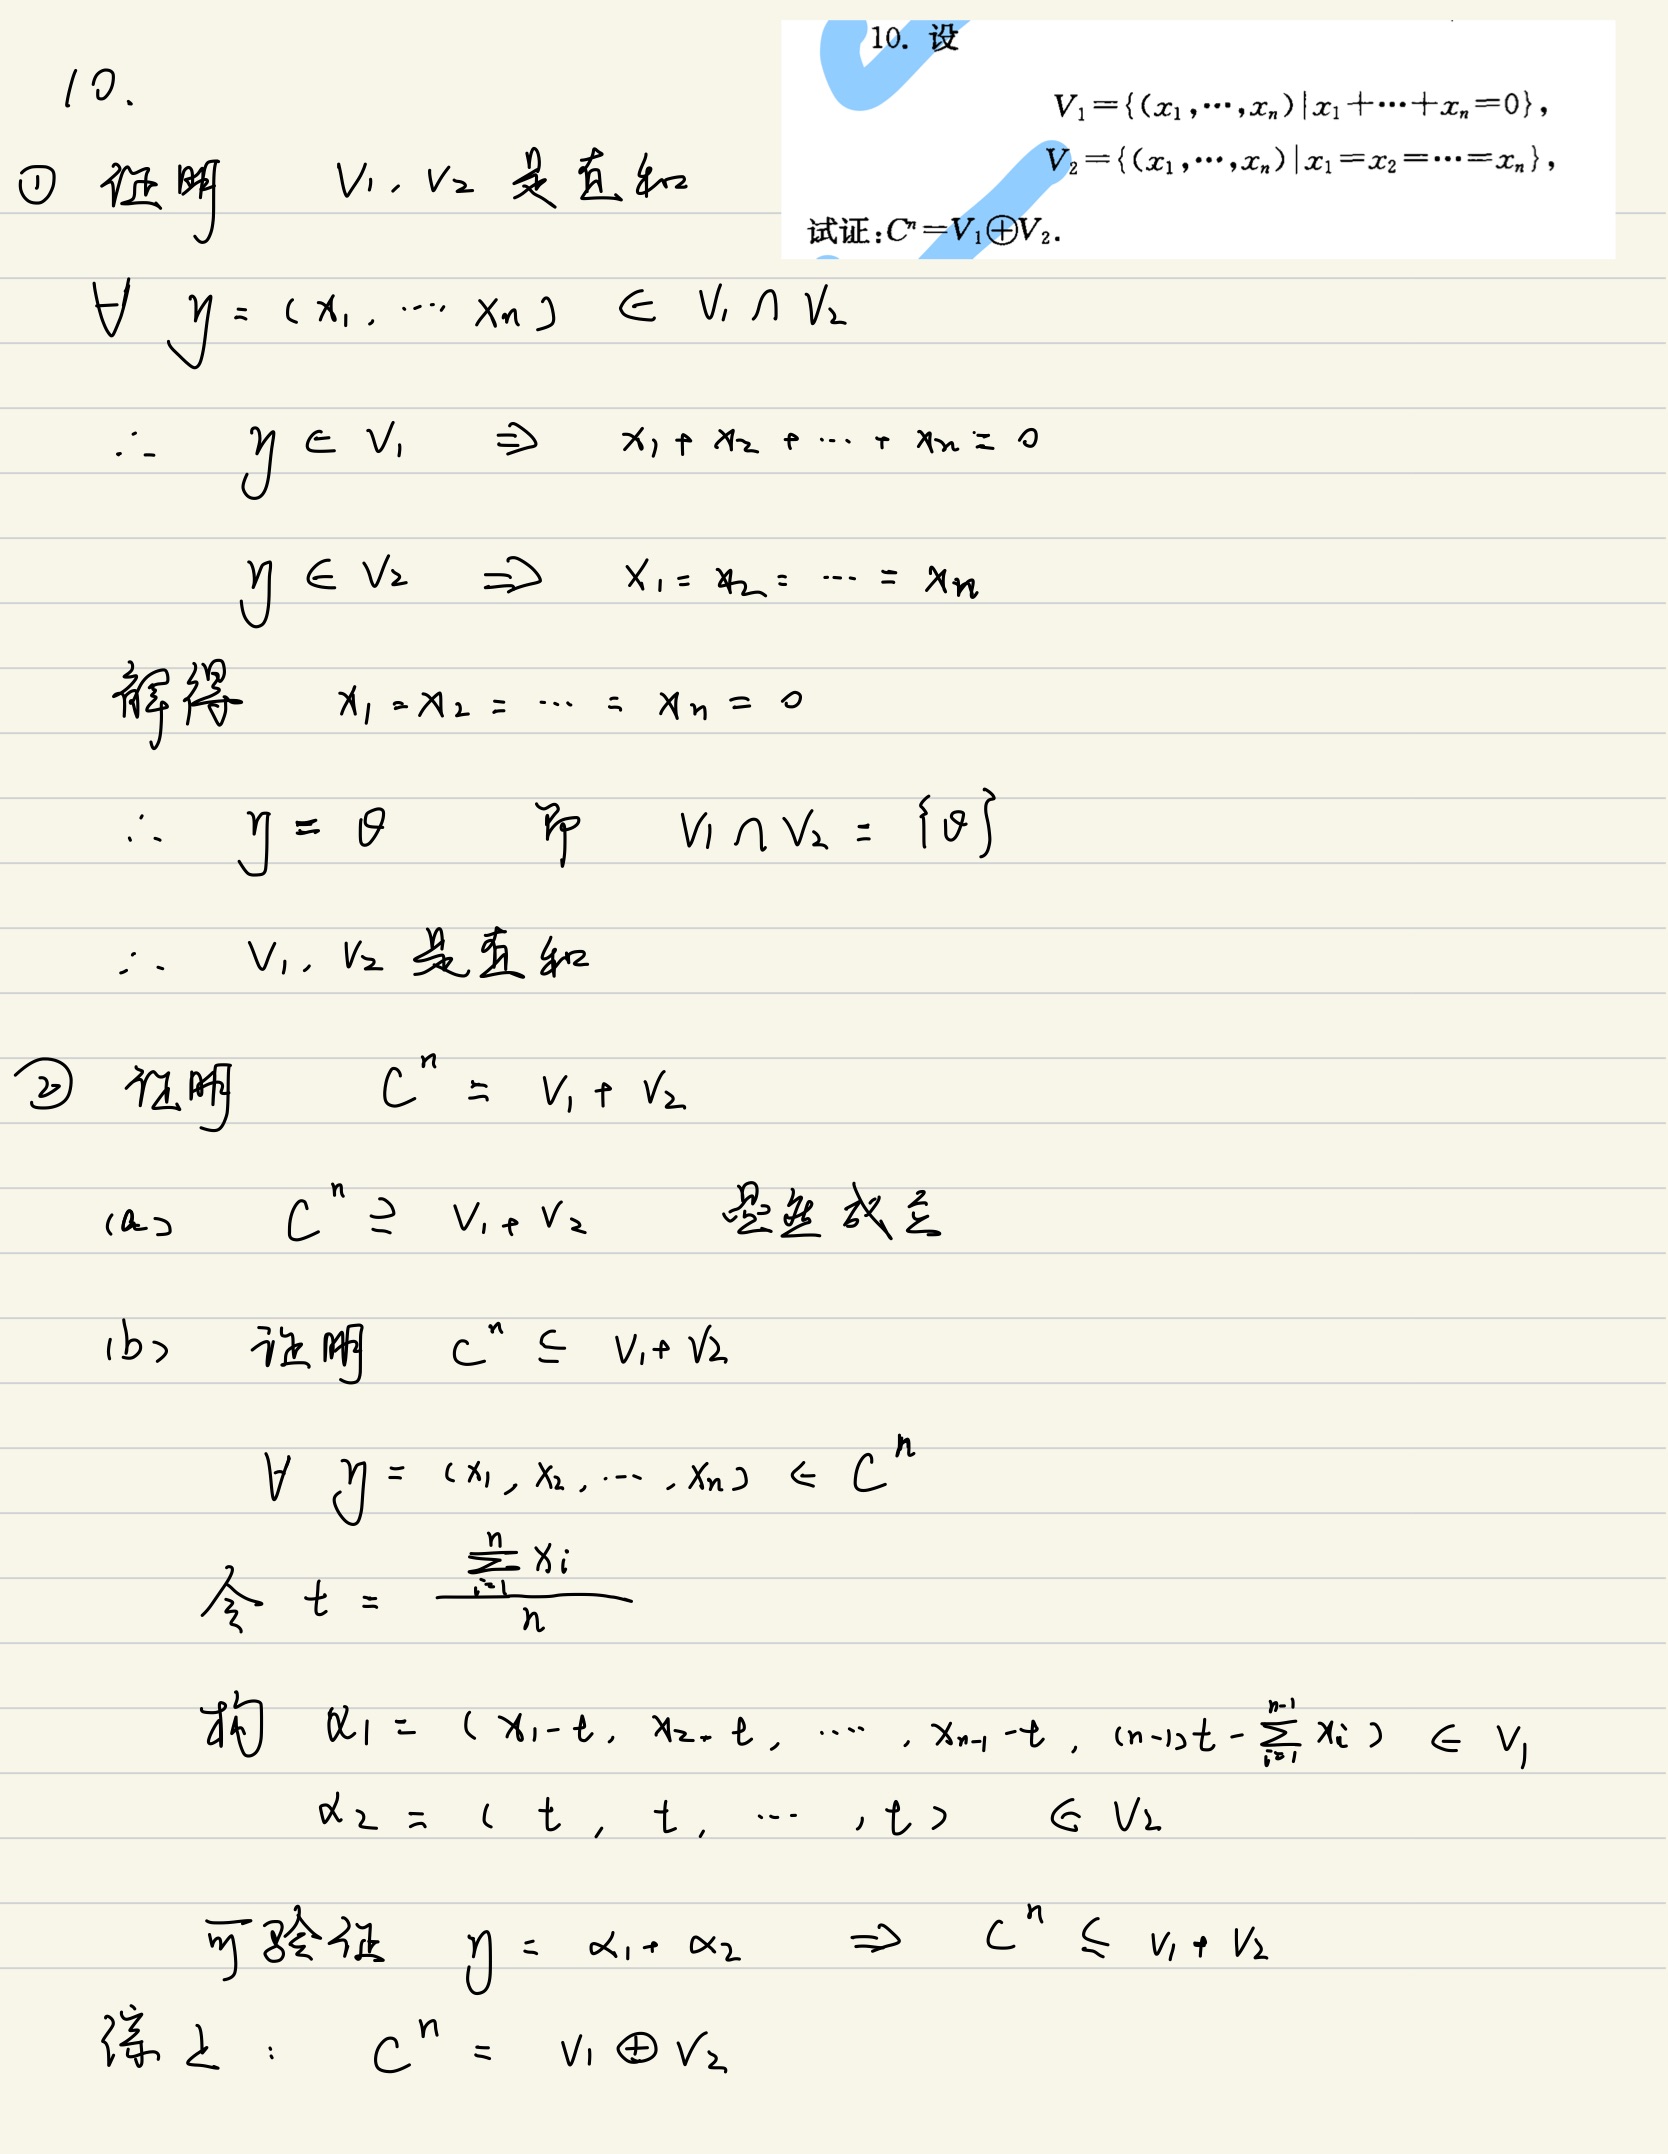 10. 设
V₁={(x₁,⋯,xₙ)|x₁+⋯+xₙ=0},
V₂={(x₁,⋯,xₙ)|x₁=x₂=⋯=xₙ},
试证:Cⁿ=V₁⊕V₂.
10.
① 证明 V₁, V₂ 是直和
∀ y = (x₁, ⋯ xₙ) ∈ V₁ ∩ V₂
∴ y ∈ V₁ ⇒ x₁ + x₂ + ⋯ + xₙ = 0
y ∈ V₂ ⇒ x₁ = x₂ = ⋯ = xₙ
解得 x₁ = x₂ = ⋯ = xₙ = 0
∴ y = θ 即 V₁ ∩ V₂ = {θ}
∴ V₁, V₂ 是直和
② 证明 Cⁿ = V₁ + V₂
(a) Cⁿ ⊇ V₁ + V₂ 显然成立
(b) 证明 Cⁿ ⊆ V₁ + V₂
∀ y = (x₁, x₂, ⋯, xₙ) ∈ Cⁿ
令 t = \frac{\sum_{i=1}^{n} xᵢ}{n}
构 α₁ = (x₁-t, x₂-t, ⋯, xₙ₋₁-t, (n-1)t - \sum_{i=1}^{n-1} xᵢ) ∈ V₁
α₂ = (t, t, ⋯, t) ∈ V₂
可验证 y = α₁ + α₂ ⇒ Cⁿ ⊆ V₁ + V₂
综上: Cⁿ = V₁ ⊕ V₂